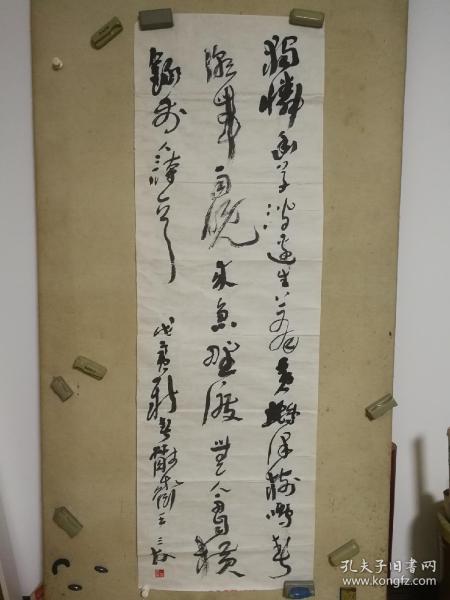 獨憐幽草澗邊生上有黃鸝深樹鳴春
潮帶雨晚来急野渡無人舟自横
錄人詩戊寅新春王三
孔夫子旧书网
www.kongfz.com